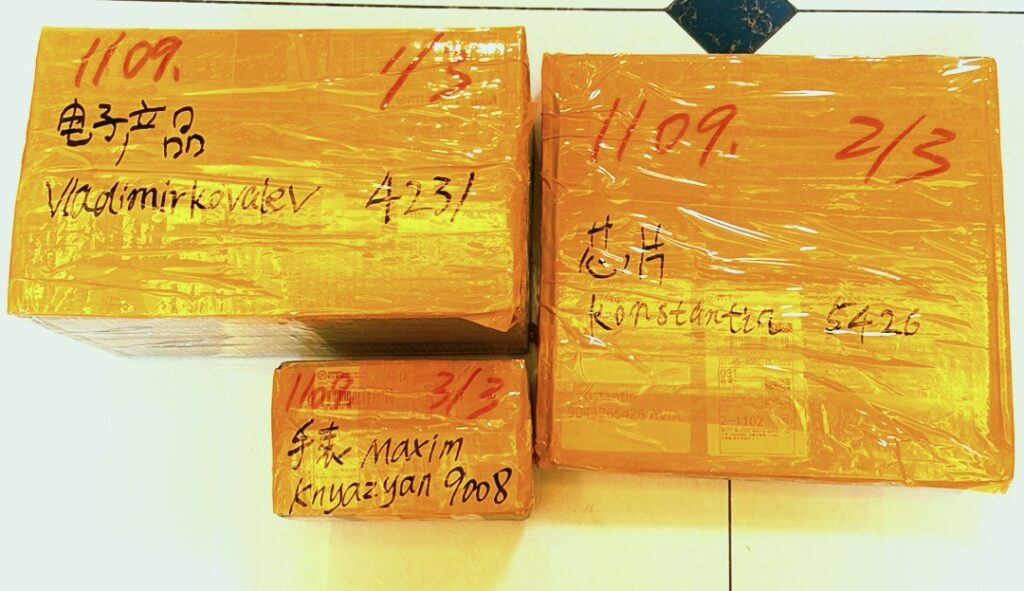 1109. 1/3
电子产品
Vladimirkovalev 4231
1109. 2/3
芯片
konstantin 5426
231
9043265426
2-1102
1109. 3/3
手表 Maxim
Knyazyan 9008